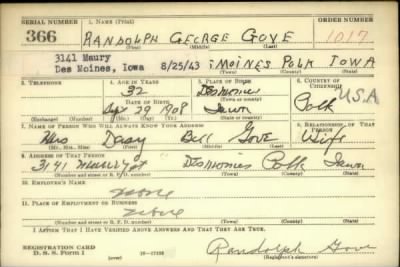 SERIAL NUMBER 1. NAME (Print) ORDER NUMBER
366 RANDOLPH GEORGE GOVE 1017
(First) (Middle) (Last)
3141 Maury
Des Moines, Iowa 8/25/43 MOINES POLK IOWA
3. TELEPHONE 4. AGE IN YEARS 5. PLACE OF BIRTH 6. COUNTRY OF CITIZENSHIP
32 Des Moines U.S.A
DATE OF BIRTH (Town or county) Polk
29 1908 Iowa
(Exchange) (Number) (Mo.) (Day) (Yr.) (State or country)
7. NAME OF PERSON WHO WILL ALWAYS KNOW YOUR ADDRESS 8. RELATIONSHIP OF THAT PERSON
Mrs Daisy Bell Gove Wife
(Mr., Mrs., Miss) (First) (Middle) (Last)
9. ADDRESS OF THAT PERSON
3141 Maury st Des Moines Polk Iowa
(Number and street or R. F. D. number) (Town) (County) (State)
10. EMPLOYER'S NAME
None
11. PLACE OF EMPLOYMENT OR BUSINESS
None
(Number and street or R. F. D. number) (Town) (County) (State)
I AFFIRM THAT I HAVE VERIFIED ABOVE ANSWERS AND THAT THEY ARE TRUE.
REGISTRATION CARD
D. S. S. Form 1 (over) 16-17105 Randolph Gove
(Registrant's signature)